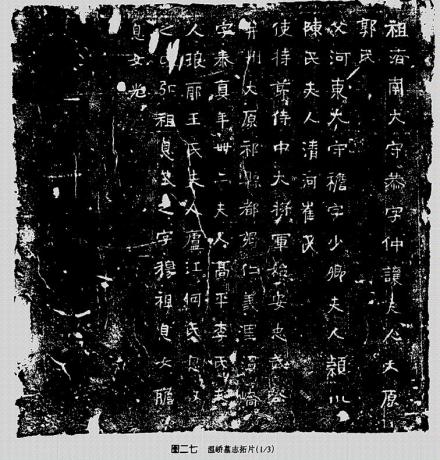 祖濟南太守恭字仲讓夫人太原
郭氏
父河東太守襜字少卿夫人潁川
陳氏夫人清河崔氏
使持節侍中大將軍始安忠武公
并州太原祁縣都鄉仁義里溫嶠
字泰真年卌二夫人高平李氏夫
人琅耶王氏夫人廬江何氏息放
之 息式之 息女膽
息女光
圖二七 溫嶠墓志拓片(1/3)